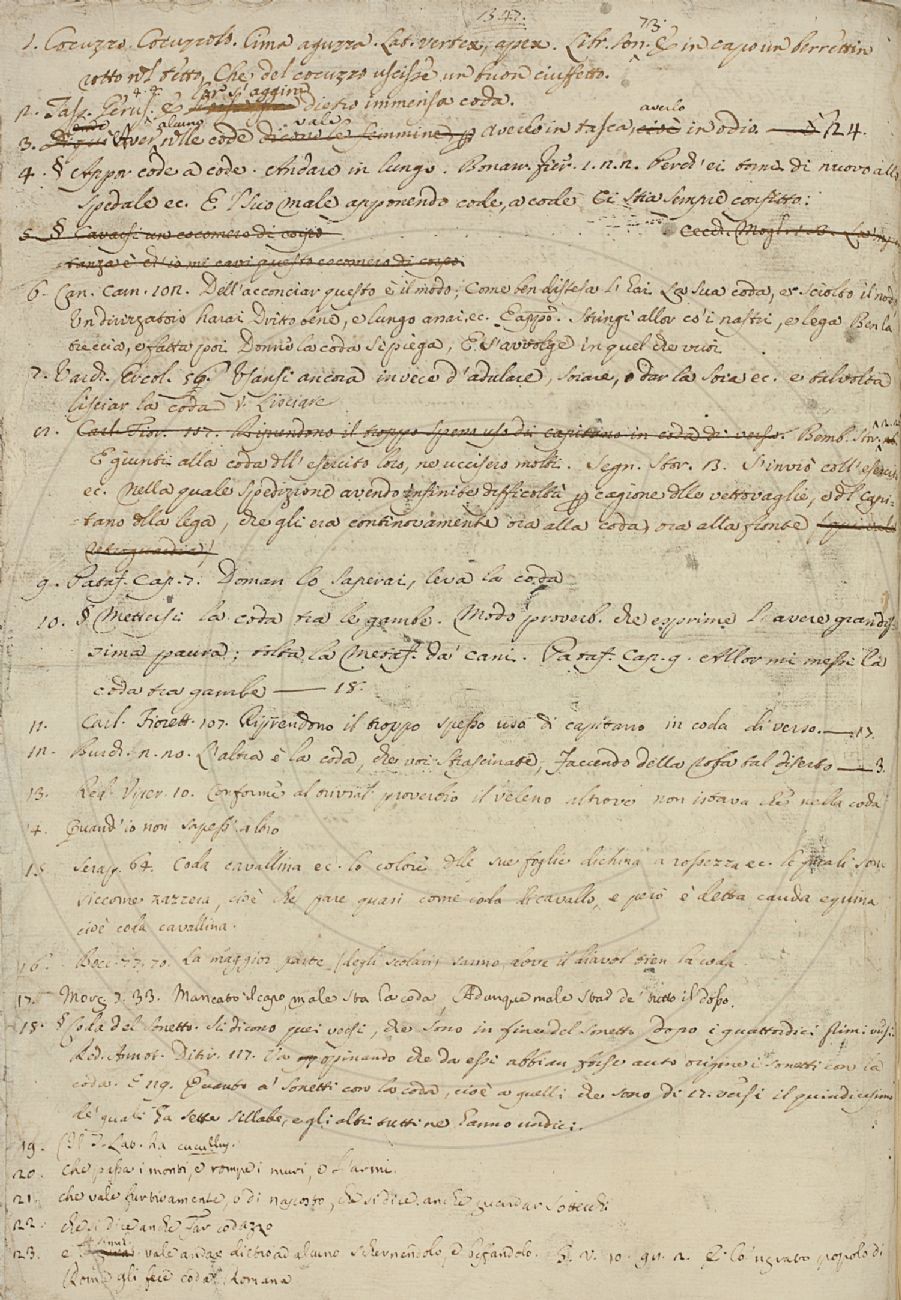 1347.
1. Cocuzzo. Cocuzzolo. Cima aguzza. Lat. vertex, apex. Libr. Son. 73. E in capo un berrettin
rotto nel tetto, Che del cocuzzo uscisse un buon ciuffetto.
2. Tass. Gerus. E par si aggiri dietro immensa coda.
3. Aver nelle code alcuno vale averlo in tasca, averlo in odio — 24.
4. § Appor code a code. Andare in lungo. Bonar. Fier. 1. 2. 2. Perch' ei torni di nuovo allo
Spedale ec. E 'l suo male apponendo code, a code Ei stia sempre confitto:
5. § Cavarsi un cocomero di corpo Cecch. Mogl.
tanza è ch' io mi cavi questo cocomero di corpo.
6. Can. Carn. 102. Dell'acconciar questo è il modo; Come ben distesa l' hai La sua coda, e sciolto il nodo
Un dirizzatoio harai Dritto bene, e lungo assai, ec. E appo. Stringi allor co' i nastri, e lega Ben la
treccia, e fatta poi Donna la coda si piega, E s'avvolge in quel che vuoi
7. Varch. Ercol. 59. Usansi ancora in vece d'adulare, soiare, o dar la soia ec. e talvolta
lisciar la coda V. Lisciare
8. Carl. Fior. 107. Riprendono il troppo spesso uso di capitano in coda di verso. Bemb. Stor.
E giunti alla coda dell' esercito loro, ne uccisero molti. Segn. Stor. 13. S'inviò coll' esercito
ec. nella quale spedizione avendo infinite difficoltà per cagione delle vettovaglie, e del Capi-
tano della lega, che gli era continovamente ora alla coda, ora alla fronte (qui vale
retroguardia)
9. Pataf. Cap. 7. Doman lo saperai, leva la coda
10. § Mettersi la coda tra le gambe. Modo proverb. che esprime l' avere grandis-
sima paura; tolta la metaf. da' cani. Pataf. Cap. 9. Allor mi messi la
coda tra gambe — 18.
11. Carl. Fiorett. 107. Riprendono il troppo spesso uso di capitano in coda di verso. — 17
12. Burch. 2. 20. L'altra è la coda, che voi strascinate, Facendo della rosa tal diserto — 3.
13. Red. Viper. 10. Conforme al trivial proverbio il veleno altrove non istava che nella coda
14. Quand' io non sapess' altro
15 Serap. 64. Coda cavallina ec. lo colore delle sue foglie dichina a rossezza ec. le quali son
siccome zazzera, cioè che pare quasi come coda di cavallo, e però è detta cauda equina
cioè coda cavallina.
16. Bocc. 77, 70. La maggior parte (degli scolari) sanno, dove il diavol tien la coda
17. Morg. 7. 33. Mancato il capo, male sta la coda, Adunque male sta de' tutto il dosso.
18. § Coda del sonetto. Si dicono quei versi, che sono in fine del sonetto dopo i quattordici primi versi.
Red. Annot. Ditir. 117. Va opinando che da essi abbian forse auto origine i sonetti con la
coda. E 119. Quanto a' sonetti con la coda, cioè a quelli che sono di 17. versi il quindicesimo
de' quali ha sette sillabe, e gli altri tutti ne hanno undici.
19. Lat. ha cucullus.
20. che passa i monti, e rompe i muri, e l'armi.
21. che vale furtivamente, o di nascosto, che si dice anche guardar sottecchi
22. che si dice anche Far codazzo
23. e vale andar dietro ad alcuno schernendolo, e beffandolo. V. 10. 90. 2. E lo 'ngrato popolo di
Roma gli fece coda Romana